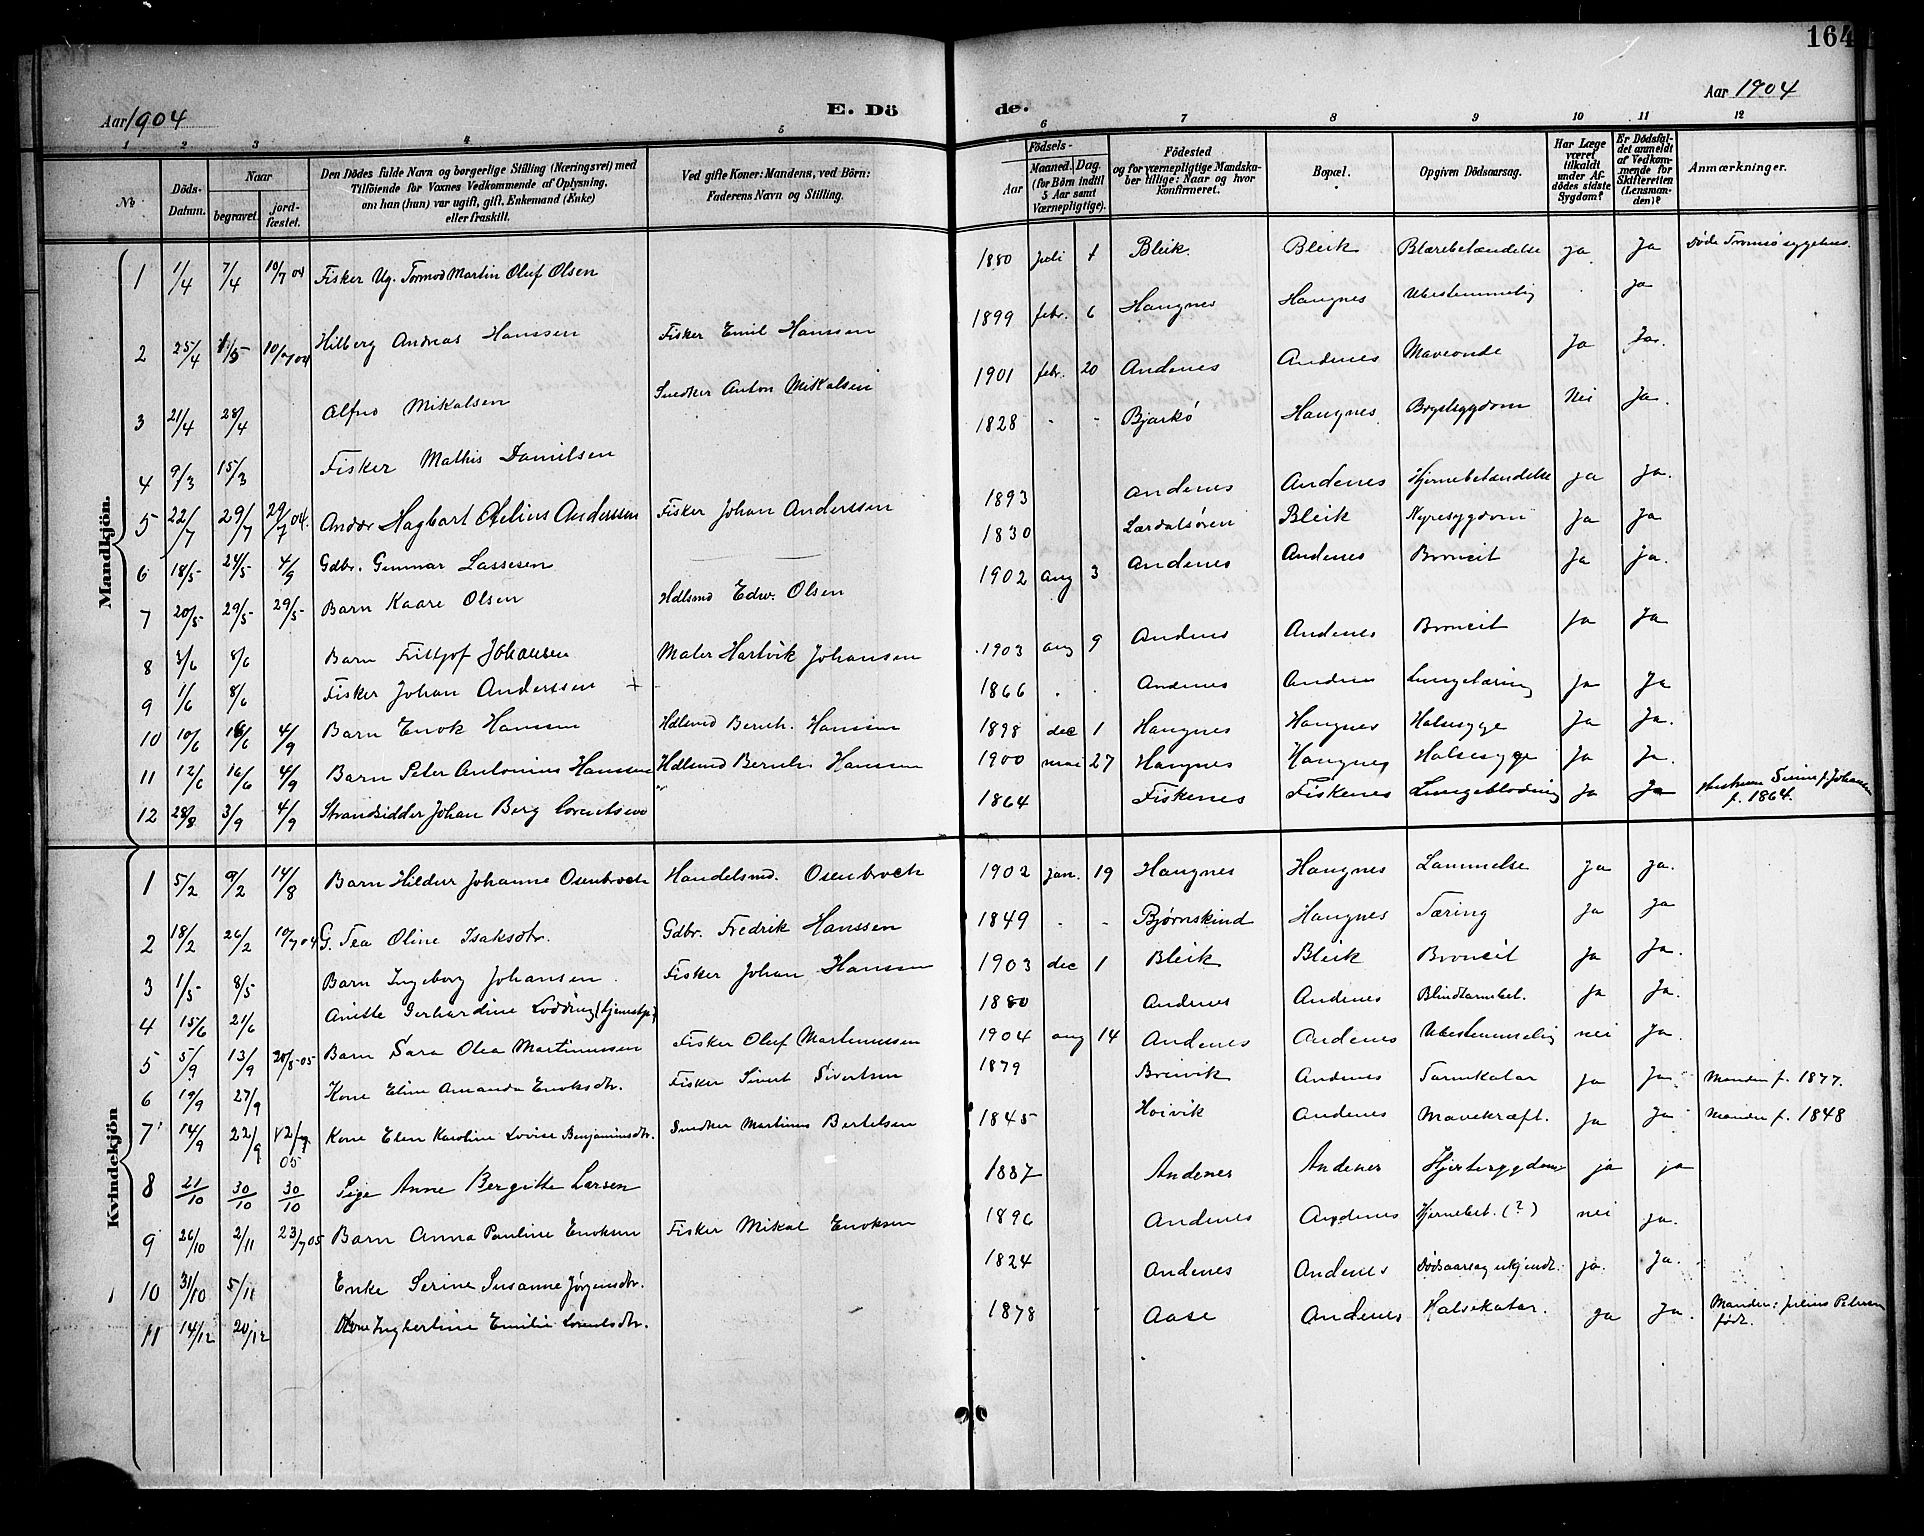 164
Aar 1904
E. Dö
de.
Aar 1904
1 2 3 4 5 6 7 8 9 10 11 12
No
Döds-Datum.
Naar
begravet.
jord-fæstet.
Den Dödes fulde Navn og borgerlige Stilling (Næringsvei) med
Tilföiende for Voxnes Vedkommende af Oplysning,
om han (hun) var ugift, gift, Enkemand (Enke)
eller fraskilt.
Ved gifte Koner: Mandens, ved Börn:
Faderens Navn og Stilling.
Födsels-
Aar
Maaned. Dag.
(for Börn indtil
5 Aar samt
Værnepligtige).
Födested
og for værnepligtige Mandska-
ber tillige: Naar og hvor
konfirmeret.
Bopæl.
Opgiven Dödsaarsag.
Har Læge
været
tilkaldt
under Af-
dödes sidste
Sygdom?
Er Dödsfal-
det anmeldt
af Vedkom-
mende for
Skifteretten
(Lensman-
den)?
Anmærkninger.
Mandkjön.
1 1/4 7/4 10/7 04 Fisker Ug. Tormod Martin Oluf Olsen 1880 juli 1 Bleik Bleik Blærebetændelse ja Ja Døde Tromsø sygehus.
2 25/4 1/5 10/7 04 Hilberg Andreas Hanssen Fisker Emil Hanssen 1899 febr. 6 Haugnes Haugnes Ubestemmelig ja
3 21/4 28/4 Alfred Mikalsen Snedker Anton Mikalsen 1901 febr. 20 Andenes Andenes Maveonde Ja Ja.
4 9/3 15/3 Fisker Mathis Danielsen 1828 - - Bjarkö Haugnes Brystsygdom Nei Ja.
5 22/7 29/7 29/7 04 Hagbart Anderssen Fisker Johan Anderssen 1893 Andenes Andenes Hjernebetændelse ja ja.
6 18/5 24/5 4/9 Gdbr. Gunnar Lassesen 1830 Lærdalsören Bleik Nyresygdom Ja Ja
7 20/5 29/5 29/5 Barn Kaare Olsen Hdlsmd Edw. Olsen 1902 aug 3 Andenes Andenes Broncit Ja ja.
8 3/6 8/6 Barn Fritjof Johansen Maler Hartvik Johansen 1903 aug 9 Andenes Andenes Broncit Ja Ja
9 1/6 8/6 Fisker Johan Anderssen + 1866 . . Andenes Andenes Lungetæring ja Ja
10 10/6 16/6 4/9 Barn Enok Hansen Hdlsmd Bernh. Hansen 1898 dec 1 Haugnes Haugnes Halssyge Ja Ja.
11 12/6 16/6 4/9 Barn Peter Antonius Hanssen Hdlsmd Bernh. Hanssen 1900 mai 27 Haugnes Haugnes Halssyge Ja Ja.
12 28/8 3/9 4/9 Strandsidder Johan Berg Lorentsen 1864 Fiskenes Fiskenes Lungeblødning Ja Ja Hustruen f. Johansen
f. 1864.
Kvindekjön
1 5/2 9/2 14/8 Barn Hildur Johanne Osenbroch Handelsmd. Osenbroch 1902 jan. 19 Haugnes Haugnes Lammelse ja ja.
2 18/2 26/2 10/7 04 G. Tea Oline Isaksdtr. Gdbr. Fredrik Hanssen 1849 - - Bjørnskind Haugnes Tæring ja Ja
3 1/5 8/5 Barn Ingeborg Johansen. Fisker Johan Hanssen 1903 dec 1 Bleik Bleik Broncit ja Ja.
4 15/6 21/6 Anitte Gerhardine Lodding (tjenestp.) 1880 Andenes Andenes Blindtarmbet. ja Ja.
5 5/9 13/9 20/8-05 Barn Sara Olea Martinussen Fisker Oluf Martinussen 1904 aug 14 Andenes Andenes Ubestemmelig nei Ja.
6 19/9 27/9 Kone Eline Amanda Enoksdtr. Fisker Sivert Sivertsen 1879 Breivik Andenes Tarmkatar ja Ja. Manden f. 1877.
7 14/9 22/9 05 Kone Elen Karoline Lovise Benjaminsdtr. Snedker Martinus Bertelsen 1845 Hoivik Andenes Mavekræft. Ja Ja Manden f. 1848
8 21/10 30/10 30/10 Pige Anne Bergitte Larsen 1887 Andenes Andenes Hjertesygdom ja ja
9 26/10 2/11 23/7 05 Barn Anna Pauline Enoksen Fisker Mikal Enoksen 1896 Andenes Andenes Hjernebet. (?) nei ja.
10 31/10 5/11 Enke Serine Susanne Jørgensdtr. 1824 Andenes Andenes Dødsaarsag ukjendt. ja. Ja.
11 14/12 20/12 Kone Ingbertine Emilie Lorentsdtr. 1878 Aase Andenes Halskatar. ja Ja. Manden: Julius Petersen
født.